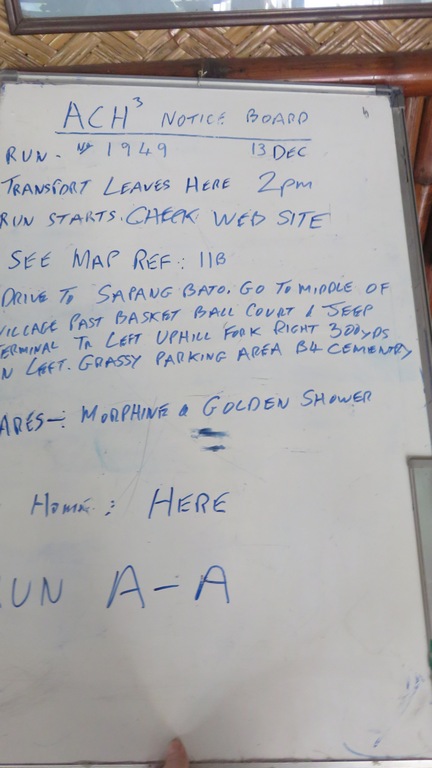 ACH³ NOTICE BOARD
RUN - Nº 1949 13 DEC
TRANSPORT LEAVES HERE 2pm
RUN STARTS. CHECK WEB SITE
SEE MAP REF: 11B
DRIVE TO SAPANG BATO. GO TO MIDDLE OF
VILLAGE PAST BASKET BALL COURT & JEEP
TERMINAL TR LEFT UPHILL FORK RIGHT 300YDS
N LEFT. GRASSY PARKING AREA B4 CEMENTRY
ARES-: MORPHINE & GOLDEN SHOWER
Home: HERE
UN A-A